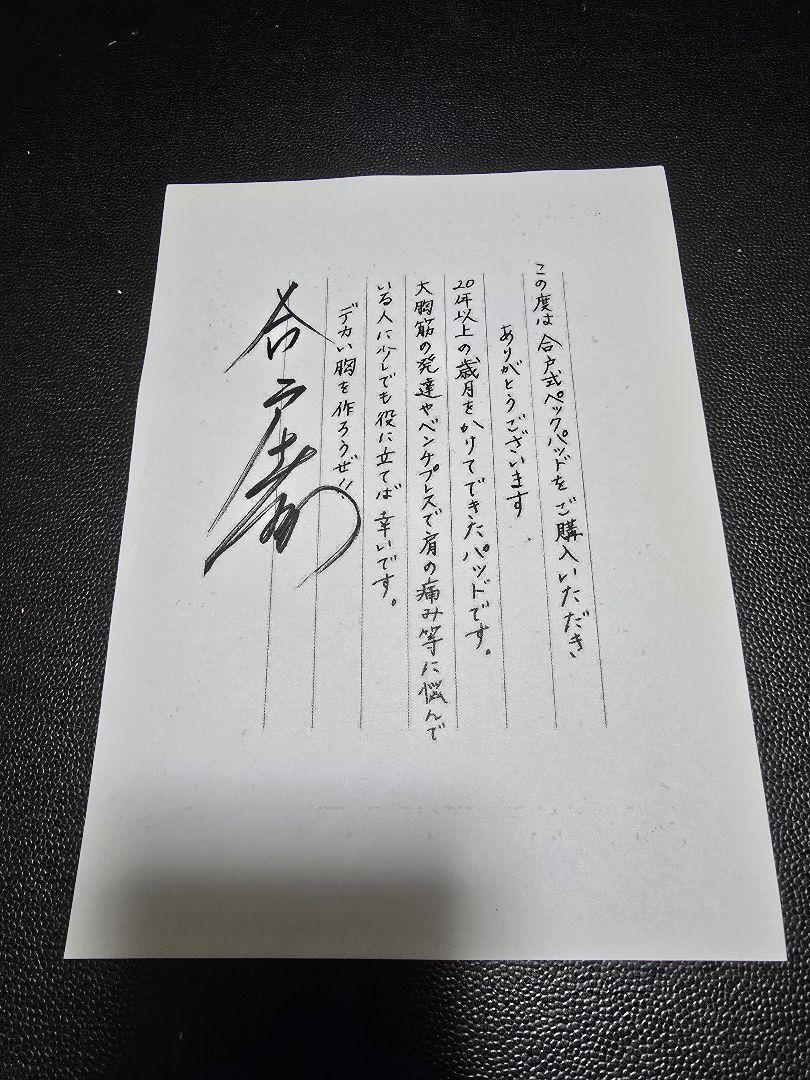 この度は合戸式ペックパッドをご購入いただき
ありがとうございます
20年以上の歳月をかけてできたパッドです。
大胸筋の発達やベンチプレスで肩の痛み等に悩んで
いる人に少しでも役に立てば幸いです。
デカい胸を作ろうぜ!!
合戸孝